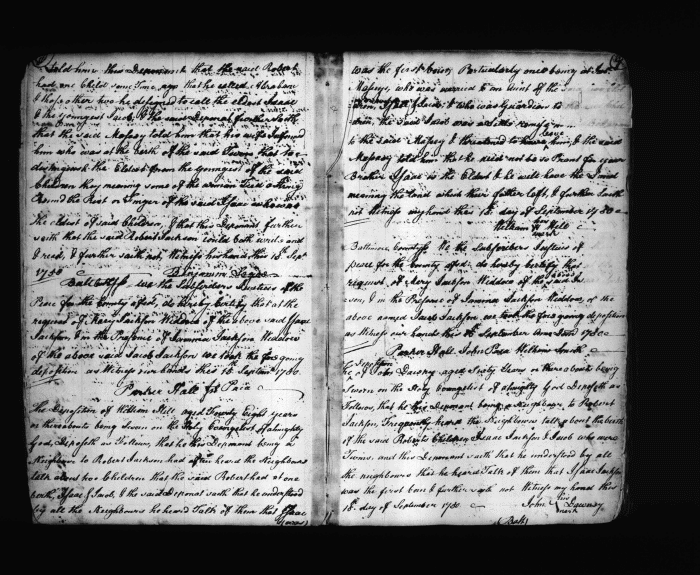 told him this Deponent that the said Robert
had one Child some Time ago that he called Abraham
& those other two he designed to call the eldest Isaac
& the youngest Jacob & the said deponant further saith
that the said Massey told him that his wife informed
him who was at the birth of the said Twins that to
distinguish the Eldest from the youngest of the said
Children they meaning some of the women Tied a String
Round the Rist or Finger of the said Isaac who was
the eldest of said Children, & that this Deponant further
saith that the said Robert Jackson could both write and
read, & further saith not, Witness his hand this 15 Sept
1750 Benjamin
Balt County ss, we the Subscribers Justices of the
Peace for the County afsd, do hereby Certify that at the
request of Mary Jackson Widdow of the above said Isaac
Jackson, & in the Presence of Jemima Jackson Widdow
of the above said Jacob Jackson we took the foregoing
deposition as Witness our hands this 15th September 1750
Parker Hall Jno Paca
The Deposition of William Hill aged Twenty Eight years
or thereabouts being Sworn on the Holy Evangelist of almighty
God, Deposeth as Follows, that he this Deponant being a
Neighbour to Robert Jackson had often heard the Neighbours
talk about two Children that the said Robert had at one
birth, Isaac & Jacob, & the said Deponant saith that he understood
by all the Neighbours he heard Talk of them that Isaac
was the first born, Particularly once being at
Massey, who was married to an Aunt of the
& who was Guardian to
the said Jacob was
to the said Massey & threatened to leave him, & the said
Massey told him that he need not be so Proud for your
Brother Isaac is the Eldest & he will have the Land
meaning the Land which their father left, & further saith
not Witness my hand this 15. day of September 1750
William his mark Hill
Baltimore County ss We the Subscribers Justices of
peace for the County afsd. do hereby certify that
request of Mary Jackson Widdow of the said
son, & in the Presence of Jemima Jackson Widdow of the
above named Jacob Jackson, we took the foregoing deposition
as Witness our hands this 15th September Anno Dom 1750
Parker Hall John Paca William Smith
The Deposition
of John Downey aged Sixty Years or thereabouts being
Sworn on the Holy Evangelist of almighty God Deposeth as
Follows, that he this Deponant being a Neighbour to Robert
Jackson, Frequently heard the Neighbours talk about the birth
of the said Roberts Children Isaac Jackson & Jacob who were
Twins, and this Deponant saith that he understood by all
the neighbours that he heard Talk of them that Isaac Jackson
was the first born & further saith not Witness my hand this
15. day of September 1750 John his mark Downey
Balt